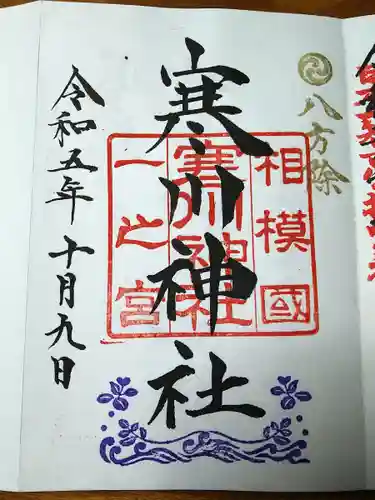 八方除
相模國
寒川神社
一之宮
寒川神社
令和五年十月九日